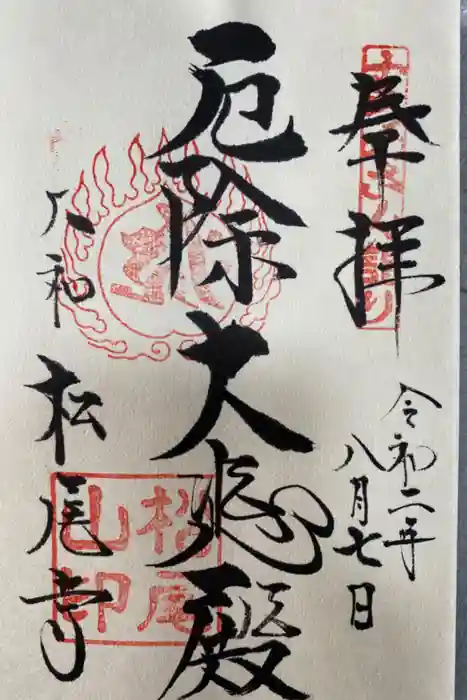 奉拝
令和二年
八月七日
厄除大悲殿
大和
松尾寺
松尾山印